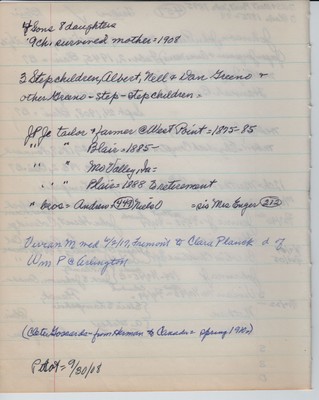 4 Sons 8 daughters
9 Ch. survived mother = 1908
3 Stepchildren, Albert, Nell & Dan Greeno &
other Greeno - step-stepchildren =
JP Jr tailor & farmer @ West Point = 1875-85
" " Blair = 1885-
" " Mo Valley, Ia =
" " Blair = 1888 to retirement
" bros = Andrew 449 Niels O = sis Mrs Unger 212
Vivian M wed 4/5/17, Fremont to Clara Planck d of
Wm. P @ Arlington
(Clate Gossards - from Herman to Canada = Spring 1910)
P dot = 9/30/08